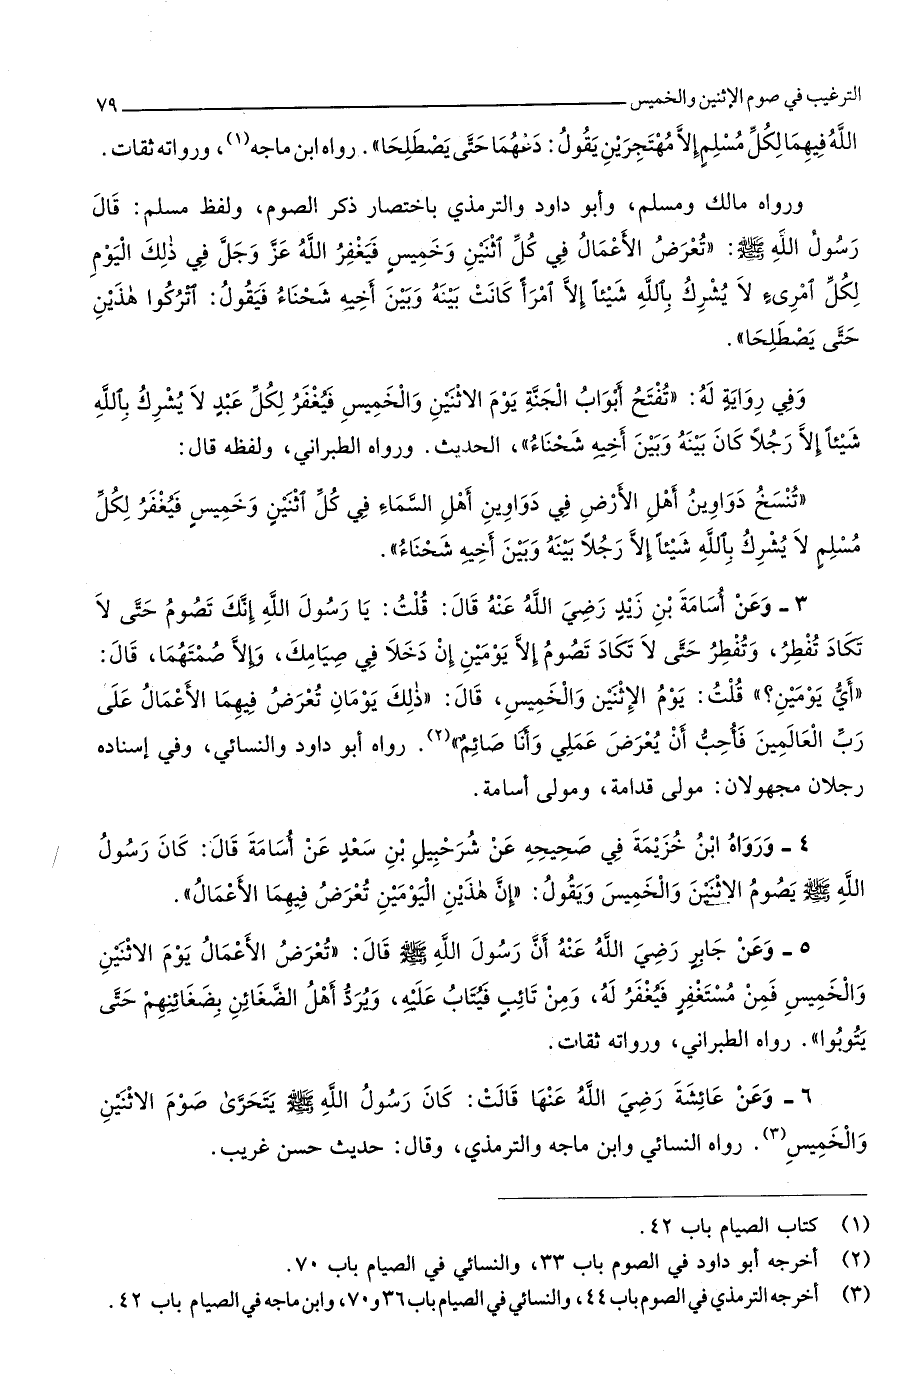 الترغيب في صوم الإثنين والخميس ــــــــــ ٧٩
اللَّهُ فِيهِمَا لِكُلِّ مُسْلِمٍ إِلاَّ مُهْتَجِرَيْنِ يَقُولُ: دَعْهُمَا حَتَّى يَصْطَلِحَا». رواه ابن ماجه(١)، ورواته ثقات.
ورواه مالك ومسلم، وأبو داود والترمذي باختصار ذكر الصوم، ولفظ مسلم: قَالَ
رَسُولُ اللَّهِ ﷺ: «تُعْرَضُ الأَعْمَالُ فِي كُلِّ ٱثْنَيْنِ وَخَمِيسٍ فَيَغْفِرُ اللَّهُ عَزَّ وَجَلَّ فِي ذٰلِكَ الْيَوْمِ
لِكُلِّ ٱمْرِىءٍ لاَ يُشْرِكُ بِٱللَّهِ شَيْئاً إِلاَّ ٱمْرَأً كَانَتْ بَيْنَهُ وَبَيْنَ أَخِيهِ شَحْنَاءُ فَيَقُولُ: ٱتْرُكُوا هٰذَيْنِ
حَتَّى يَصْطَلِحَا».
وَفِي رِوَايَةٍ لَهُ: «تُفْتَحُ أَبْوَابُ الْجَنَّةِ يَوْمَ الاثْنَيْنِ وَالْخَمِيسِ فَيُغْفَرُ لِكُلِّ عَبْدٍ لاَ يُشْرِكُ بِٱللَّهِ
شَيْئاً إِلاَّ رَجُلاً كَانَ بَيْنَهُ وَبَيْنَ أَخِيهِ شَحْنَاءُ»، الحديث. ورواه الطبراني، ولفظه قال:
«تُنْسَخُ دَوَاوِينُ أَهْلِ الأَرْضِ فِي دَوَاوِينِ أَهْلِ السَّمَاءِ فِي كُلِّ ٱثْنَيْنٍ وَخَمِيسٍ فَيُغْفَرُ لِكُلِّ
مُسْلِمٍ لاَ يُشْرِكُ بِٱللَّهِ شَيْئاً إِلاَّ رَجُلاً بَيْنَهُ وَبَيْنَ أَخِيهِ شَحْنَاءُ».
٣ ـ وَعَنْ أُسَامَةَ بْنِ زَيْدٍ رَضِيَ اللَّهُ عَنْهُ قَالَ: قُلْتُ: يَا رَسُولَ اللَّهِ إِنَّكَ تَصُومُ حَتَّى لاَ
تَكَادَ تُفْطِرُ، وَتُفْطِرُ حَتَّى لاَ تَكَادَ تَصُومُ إِلاَّ يَوْمَيْنِ إِنْ دَخَلاَ فِي صِيَامِكَ، وَإِلاَّ صُمْتَهُمَا، قَالَ:
«أَيُّ يَوْمَيْنِ؟» قُلْتُ: يَوْمُ الإِثْنَيْنِ وَالْخَمِيسِ، قَالَ: «ذٰلِكَ يَوْمَانِ تُعْرَضُ فِيهِمَا الأَعْمَالُ عَلَى
رَبِّ الْعَالَمِينَ فَأُحِبُّ أَنْ يُعْرَضَ عَمَلِي وَأَنَا صَائِمٌ»(٢). رواه أبو داود والنسائي، وفي إسناده
رجلان مجهولان: مولى قدامة، ومولى أسامة.
٤ ـ وَرَوَاهُ ابْنُ خُزَيْمَةَ فِي صَحِيحِهِ عَنْ شُرَحْبِيلِ بْنِ سَعْدٍ عَنْ أُسَامَةَ قَالَ: كَانَ رَسُولُ
اللَّهِ ﷺ يَصُومُ الاثْنَيْنَ وَالْخَمِيسَ وَيَقُولُ: «إِنَّ هٰذَيْنِ الْيَوْمَيْنِ تُعْرَضُ فِيهِمَا الأَعْمَالُ».
٥ ـ وَعَنْ جَابِرٍ رَضِيَ اللَّهُ عَنْهُ أَنَّ رَسُولَ اللَّهِ ﷺ قَالَ: «تُعْرَضُ الأَعْمَالُ يَوْمَ الاثْنَيْنِ
وَالْخَمِيسِ فَمِنْ مُسْتَغْفِرٍ فَيُغْفَرُ لَهُ، وَمِنْ تَائِبٍ فَيُتَابُ عَلَيْهِ، وَيُرَدُّ أَهْلُ الضَّغَائِنِ بِضَغَائِنِهِمْ حَتَّى
يَتُوبُوا». رواه الطبراني، ورواته ثقات.
٦ ـ وَعَنْ عَائِشَةَ رَضِيَ اللَّهُ عَنْهَا قَالَتْ: كَانَ رَسُولُ اللَّهِ ﷺ يَتَحَرَّىٰ صَوْمَ الاثْنَيْنِ
وَالْخَمِيسِ(٣). رواه النسائي وابن ماجه والترمذي، وقال: حديث حسن غريب.
(١) كتاب الصيام باب ٤٢.
(٢) أخرجه أبو داود في الصوم باب ٣٣، والنسائي في الصيام باب ٧٠.
(٣) أخرجه الترمذي في الصوم باب ٤٤، والنسائي في الصيام باب ٣٦ و٧٠، وابن ماجه في الصيام باب ٤٢.